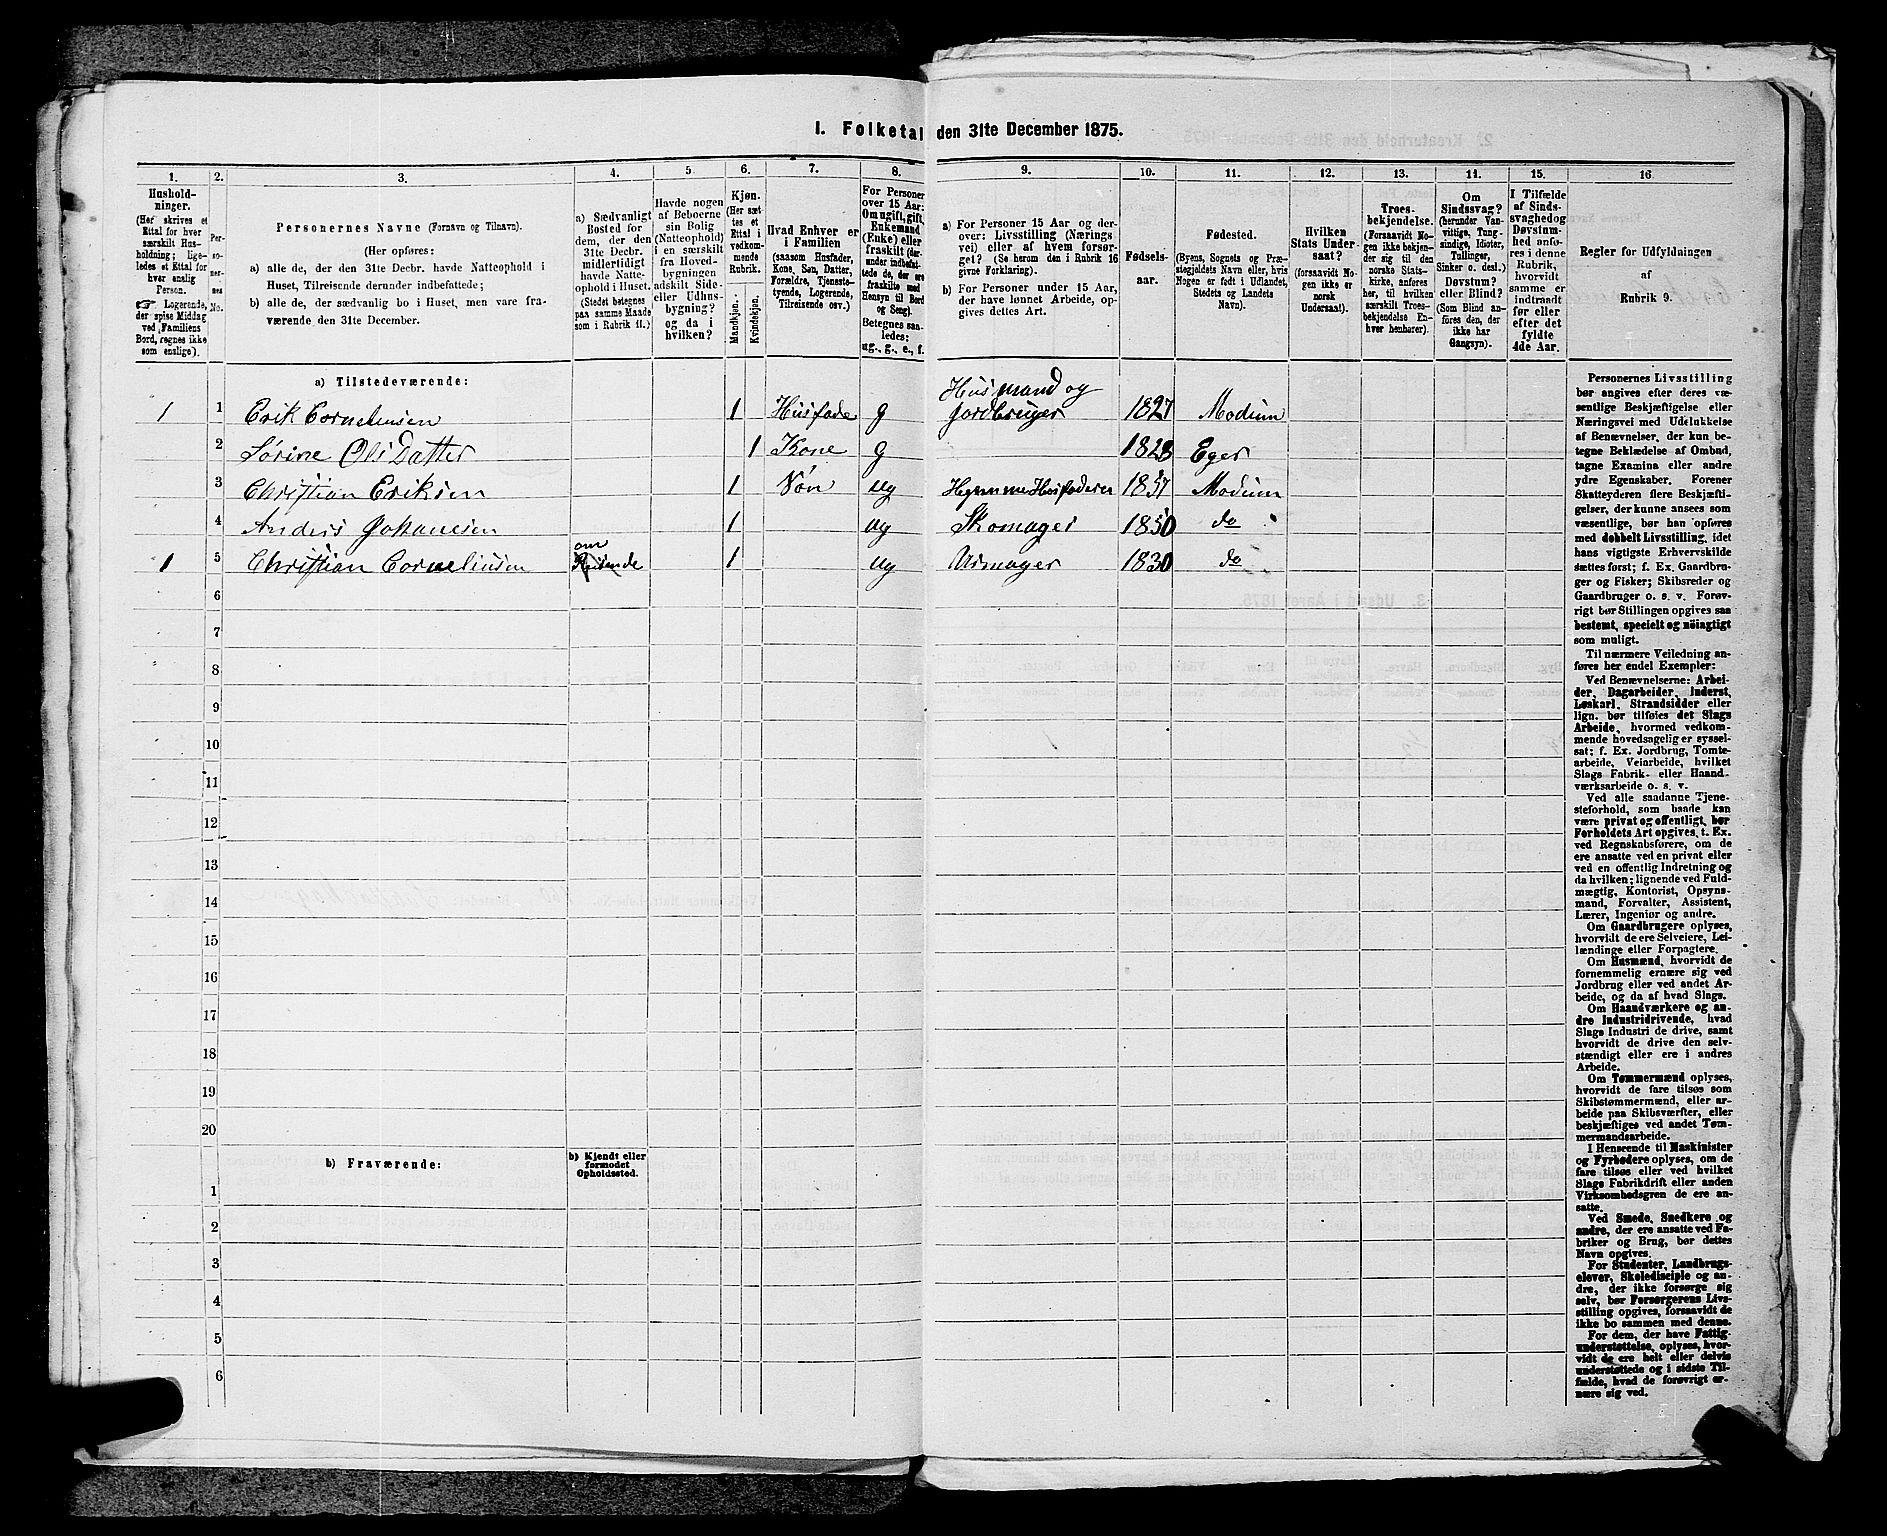 I. Folketal den 31te December 1875.
1. 2. 3. 4. 5. 6. 7. 8. 9. 10. 11. 12. 13. 14. 15. 16
Husholdninger.
(Her skrives et
Ettal for hver
særskilt Husholdning; ligeledes
et Ettal for
hver enslig
Person.
☞ Logerende,
der spise Middag
ved Familiens
Bord, regnes ikke
som enslige).
Personernes No.
Personernes Navne (Fornavn og Tilnavn).
(Her opføres:
a) alle de, der den 31te Decbr. havde Natteophold i
Huset, Tilreisende derunder indbefattede;
b) alle de, der sædvanlig bo i Huset, men vare fraværende
den 31te December.
a) Sædvanligt
Bosted for
dem, der den
31te Decbr.
midlertidigt
havde Natteophold
i Huset.
(Stedet betegnes
paa samme Maade
som i Rubrik 11.)
Havde nogen
af Beboerne
sin Bolig
(Natteophold)
i en særskilt
fra Hovedbygningen
adskilt Side-
eller Udhusbygning?
og da i
hvilken?
Kjøn.
(Her sættes
et
Ettal i
vedkommende
Rubrik.
Mandkjøn.
Kvindekjøn.
Hvad Enhver er
i Familien
(saasom Husfader,
Kone, Søn, Datter,
Forældre, Tjenestetyende,
Logerende,
Tilreisende osv.)
For Personer
over 15 Aar:
Om ugift, gift,
Enkemand
(Enke) eller
fraskilt (derunder
indbefattede
de, der ere
fraskilte med
Hensyn til Bord
og Seng).
Betegnes saaledes:
ug., g., e., f.
a) For Personer 15 Aar og derover:
Livsstilling (Næringsvei)
eller af hvem forsørget?
(Se herom den i Rubrik 16
givne Forklaring).
b) For Personer under 15 Aar,
der have lønnet Arbeide, opgives
dettes Art.
Fødselsaar.
Fødested.
(Byens, Sognets og Præstegjeldets
Navn eller, hvis
Nogen er født i Udlandet,
Stedets og Landets
Navn).
Hvilken
Stats Undersaat?
(forsaavidt Nogen
ikke er
norsk
Undersaat).
Troesbekjendelse.
(Forsaavidt Nogen
ikke bekjender
sig til den
norske Statskirke,
anføres
her, til hvilken
særskilt Troesbekjendelse
Enhver
henhører).
Om
Sindssvag?
(herunder Vanvittige,
Tungsindige,
Idioter,
Tullinger,
Sinker o. desl.)
Døvstum?
eller Blind?
(Som Blind anføres
den, der
ikke har
Gangsyn).
I Tilfælde
af Sindssvaghed
og
Døvstumhed
anføres
i denne
Rubrik,
hvorvidt
samme er
indtraadt
før eller
efter det
fyldte
4de Aar.
Regler for Udfyldningen
af
Rubrik 9.
a) Tilstedeværende:
1 1 Erik Corneliusen 1 Husfade g Husmand og Jordbruger 1827 Modum
2 Sørine OlsDatter 1 Kone g 1828 Eger
3 Christian Eriksen 1 Søn ug 1857 Modum
4 Anders Johanesen 1 ug Skomager 1850 do
1 5 Christian Corneliusen om Reisende 1 ug Urmager 1830 do
6
7
8
9
10
11
12
13
14
15
16
17
18
19
20
b) Fraværende:
b) Kjendt eller
formodet
Opholdssted.
1
2
3
4
5
6
Personernes Livsstilling
bør angives efter deres væsentlige
Beskjæftigelse eller
Næringsvei med Udelukkelse
af Benævnelser, der kun betegne
Beklædelse af Ombud,
tagne Examina eller andre
ydre Egenskaber. Forener
Skatteyderen flere Beskjæftigelser,
der kunne ansees som
væsentlige, bør han opføres
med dobbelt Livsstilling, idet
hans vigtigste Erhvervskilde
sættes først; f. Ex. Gaardbruger
og Fisker; Skibsreder og
Gaardbruger o. s. v. Forøvrigt
bør Stillingen opgives saa
bestemt, specielt og nøiagtigt
som muligt.
Til nærmere Veiledning anføres
her endel Exempler:
Ved Benævnelserne: Arbeider,
Dagarbeider, Inderst,
Løskarl, Strandsidder eller
lign. bør tilføies det Slags
Arbeide, hvormed vedkommende
hovedsagelig er sysselsat;
f. Ex. Jordbrug, Tomtearbeide,
Veiarbeide, hvilket
Slags Fabrik- eller Haandværksarbeide
o. s. v.
Ved alle saadanne Tjenesteforhold,
som baade kan
være privat og offentligt, bør
Forholdets Art opgives, t. Ex.
ved Regnskabsførere, om de
ere ansatte ved en privat eller
ved en offentlig Indretning og
da hvilken; lignende ved Fuldmægtig,
Kontorist, Opsynsmand,
Forvalter, Assistent,
Lærer, Ingeniør og andre.
Om Gaardbrugere oplyses,
hvorvidt de ere Selveiere, Leilændinge
eller Forpagtere.
Om Husmænd, hvorvidt de
fornemmelig ernære sig ved
Jordbrug eller ved andet Arbeide,
og da af hvad Slags.
Om Haandværkere og andre
Industridrivende, hvad
Slags Industri de drive, samt
hvorvidt de drive den selvstændigt
eller ere i andres
Arbeide.
Om Tømmermænd oplyses,
hvorvidt de fare tilsøs som
Skibstømmermænd, eller arbeide
paa Skibsværfter, eller
beskjæftiges ved andet Tømmermandsarbeide.
I Henseende til Maskinister
og Fyrbødere oplyses, om de
fare tilsøs eller ved hvilket
Slags Fabrikdrift eller anden
Virksomhedsgren de ere ansatte.
Ved Smede, Snedkere og
andre, der ere ansatte ved Fabriker
og Brug, bør dettes
Navn opgives.
For Studenter, Landbrugselever,
Skoledisciple og andre,
der ikke forsørge sig
selv, bør Forsørgerens Livsstilling
opgives, forsaavidt de
ikke bo sammen med denne.
For dem, der have Fattigunderstøttelse,
oplyses, hvorvidt
de ere helt eller delvis
understøttede og i sidste Tilfælde,
hvad de forøvrigt ernære
sig ved.